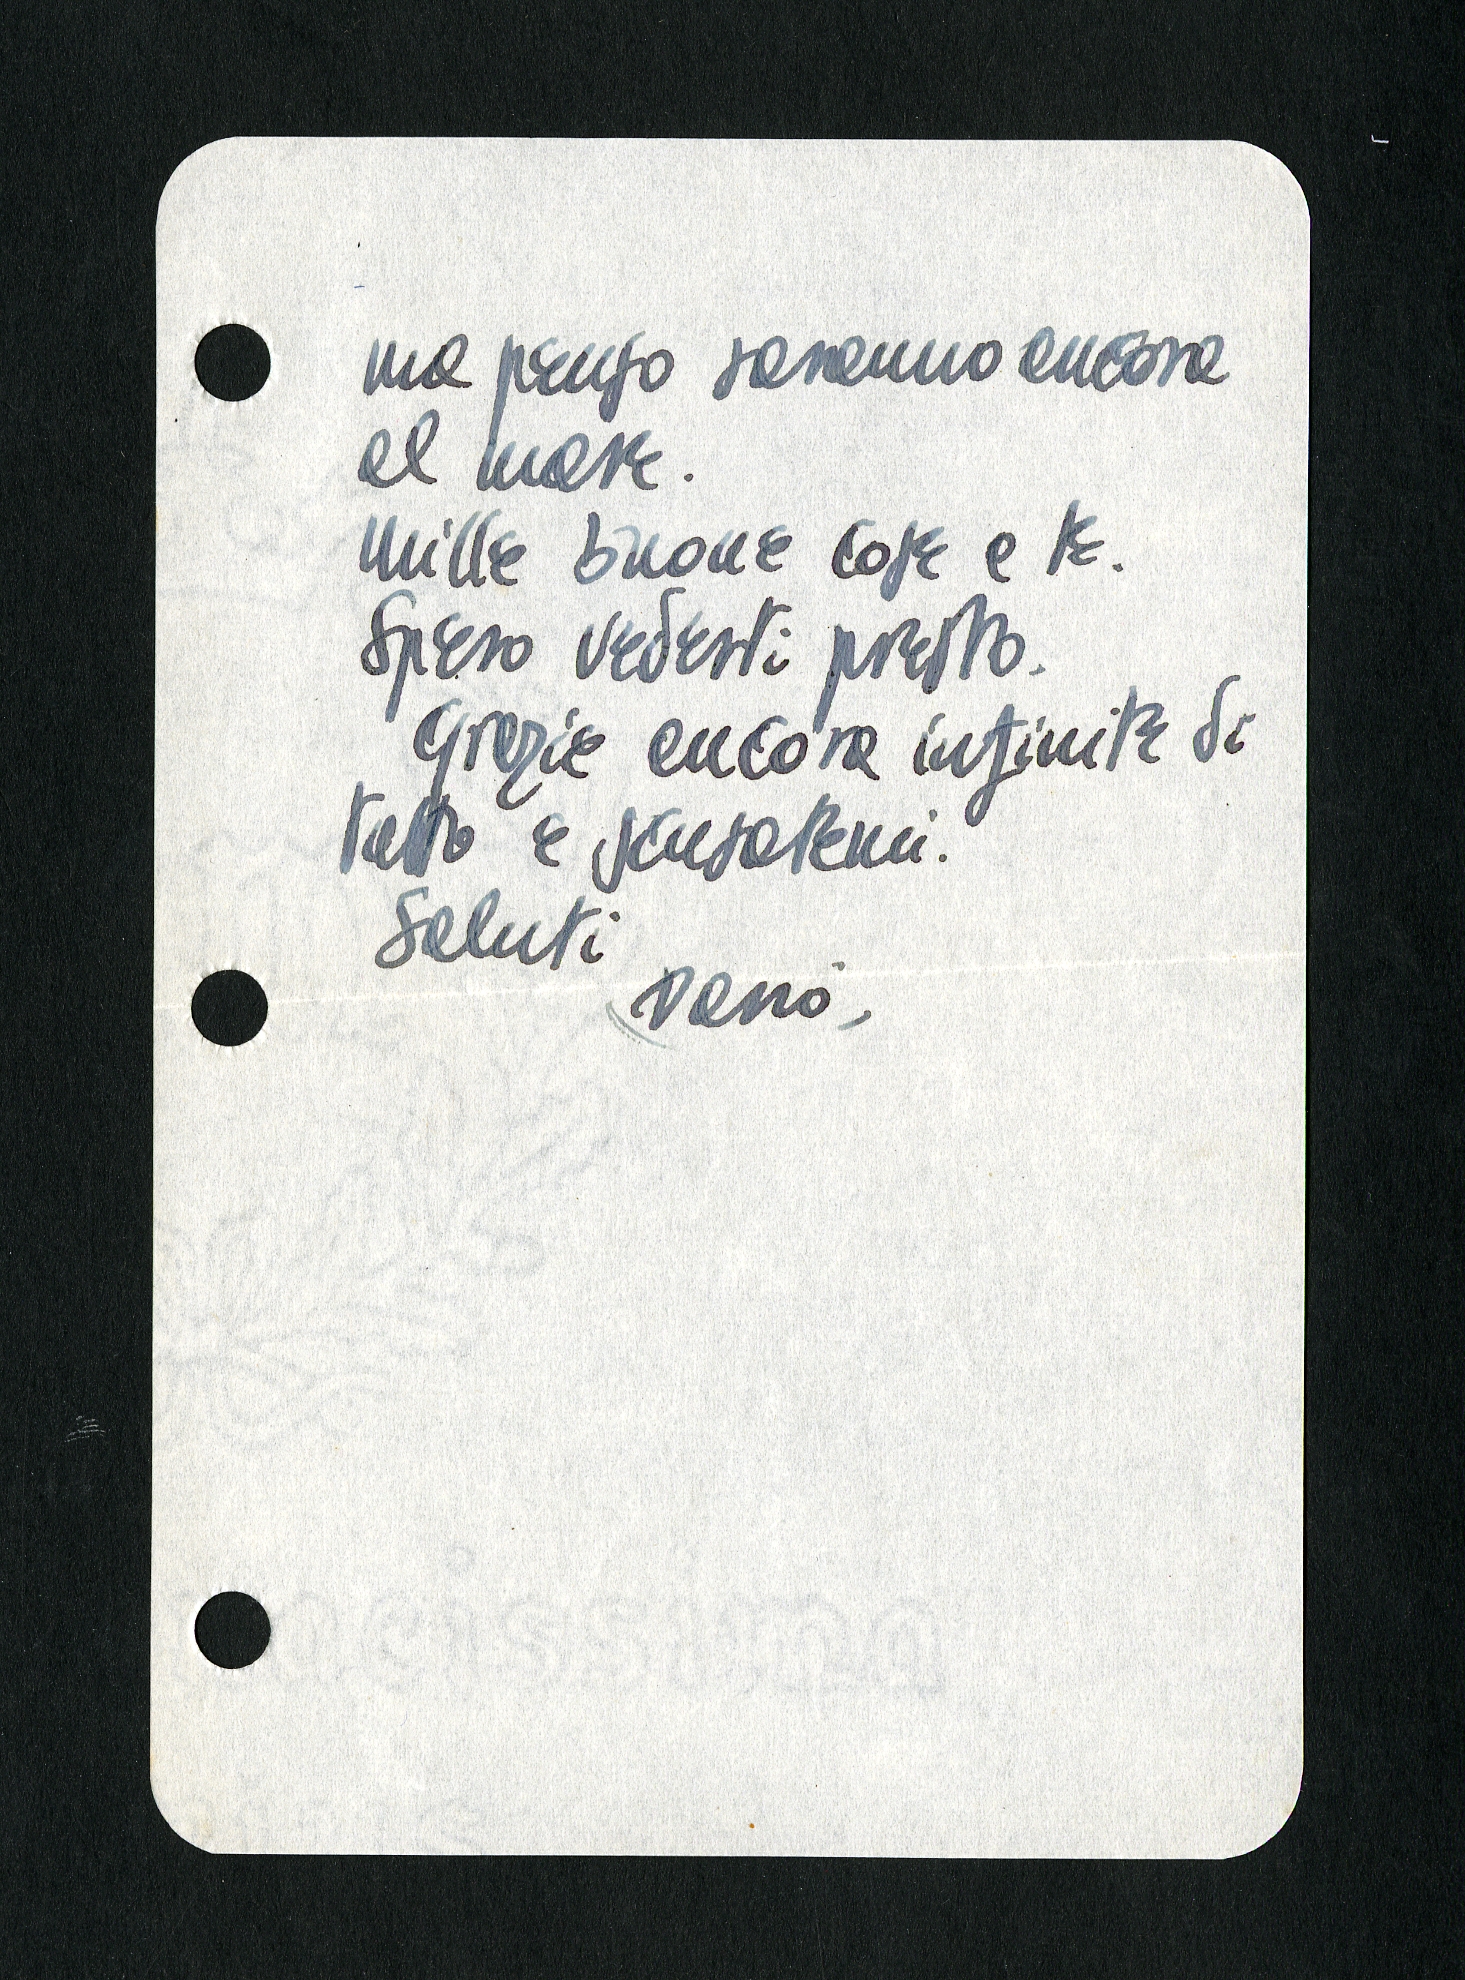 ma penso saranno ancora
al mare.
Mille buone cose a te.
Spero vederti presto.
Grazie ancora infinite di
tutto e scusatemi.
Saluti